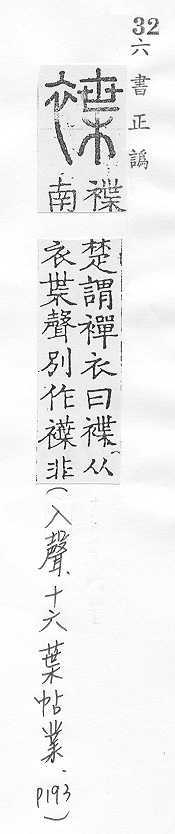 32
六書正譌
褋
褋
南
楚謂襌衣曰褋从
衣枼聲別作非
(入聲、十六葉帖業、P193)